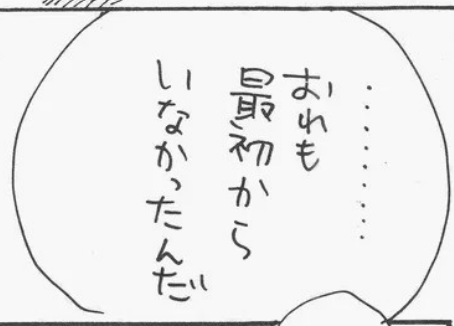 ………
おれも
最初から
いなかったんだ